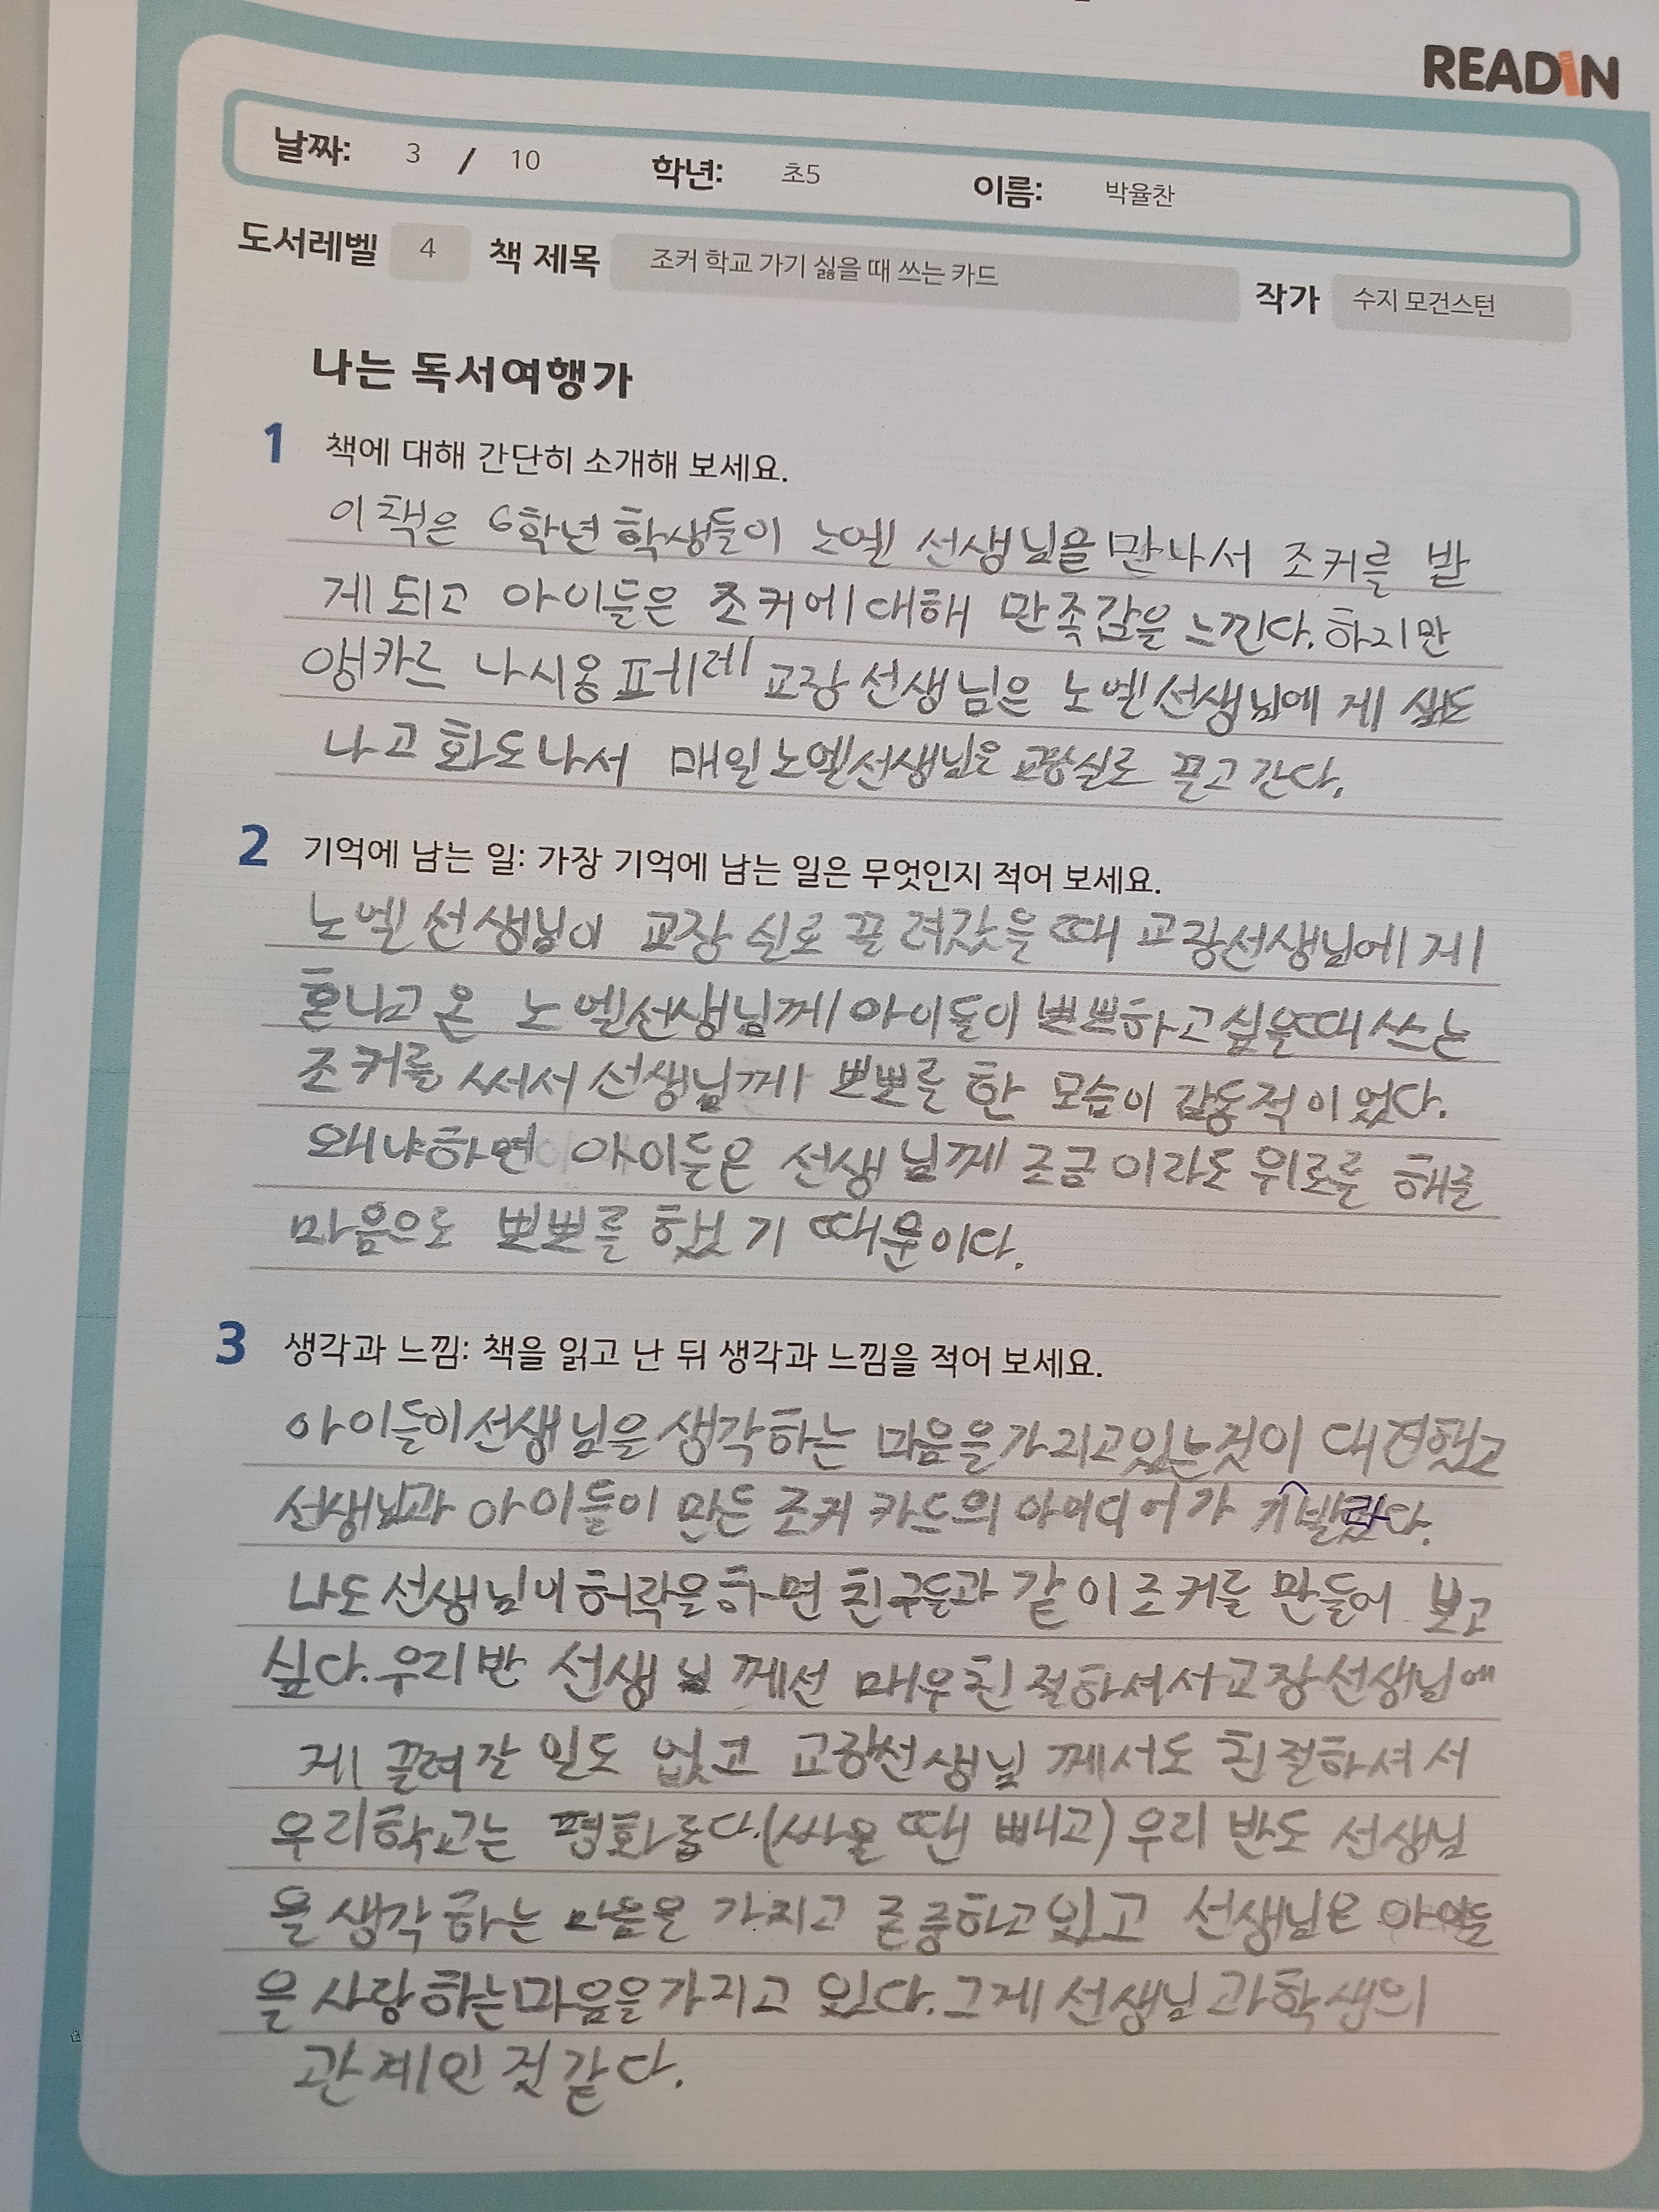 READIN
날짜: 3 / 10 학년: 초5 이름: 박율찬
도서레벨 4 책 제목 조커 학교 가기 싫을 때 쓰는 카드 작가 수지 모건스턴
나는 독서여행가
1 책에 대해 간단히 소개해 보세요.
이 책은 6학년 학생들이 노엘 선생님을 만나서 조커를 받
게 되고 아이들은 조커에 대해 만족감을 느낀다. 하지만
앵카르 나시옹 페레 교장 선생님은 노엘 선생님에게
나고 화도 나서 매일 노엘 선생님은 교장실로 끌고 간다.
2 기억에 남는 일: 가장 기억에 남는 일은 무엇인지 적어 보세요.
노엘 선생님이 교장 실로 끌려갔을 때 교장선생님에게
혼나고 온 노엘선생님께 아이들이 뽀뽀하고 싶을때 쓰는
조커를 써서 선생님께 뽀뽀를 한 모습이 감동적이었다.
왜냐하면 아이들은 선생님께 조금이라도 위로를 해줄
마음으로 뽀뽀를 했기 때문이다.
3 생각과 느낌: 책을 읽고 난 뒤 생각과 느낌을 적어 보세요.
아이들이 선생님을 생각하는 마음을 가지고있는것이 대견했고
선생님과 아이들이 만든 조커 카드의 아이디어가 기발했다.
나도 선생님이 허락을 하면 친구들과 같이 조커를 만들어 보고
싶다. 우리반 선생님께선 매우 친절하셔서 교장선생님에
게 끌려갈 일도 없고 교장선생님께서도 친절하셔서
우리학교는 평화롭다.(싸울 땐 빼고) 우리 반도 선생님
을 생각하는 마음을 가지고 존중하고 있고 선생님은 아이들
을 사랑하는 마음을 가지고 있다. 그게 선생님과 학생의
관계인 것 같다.